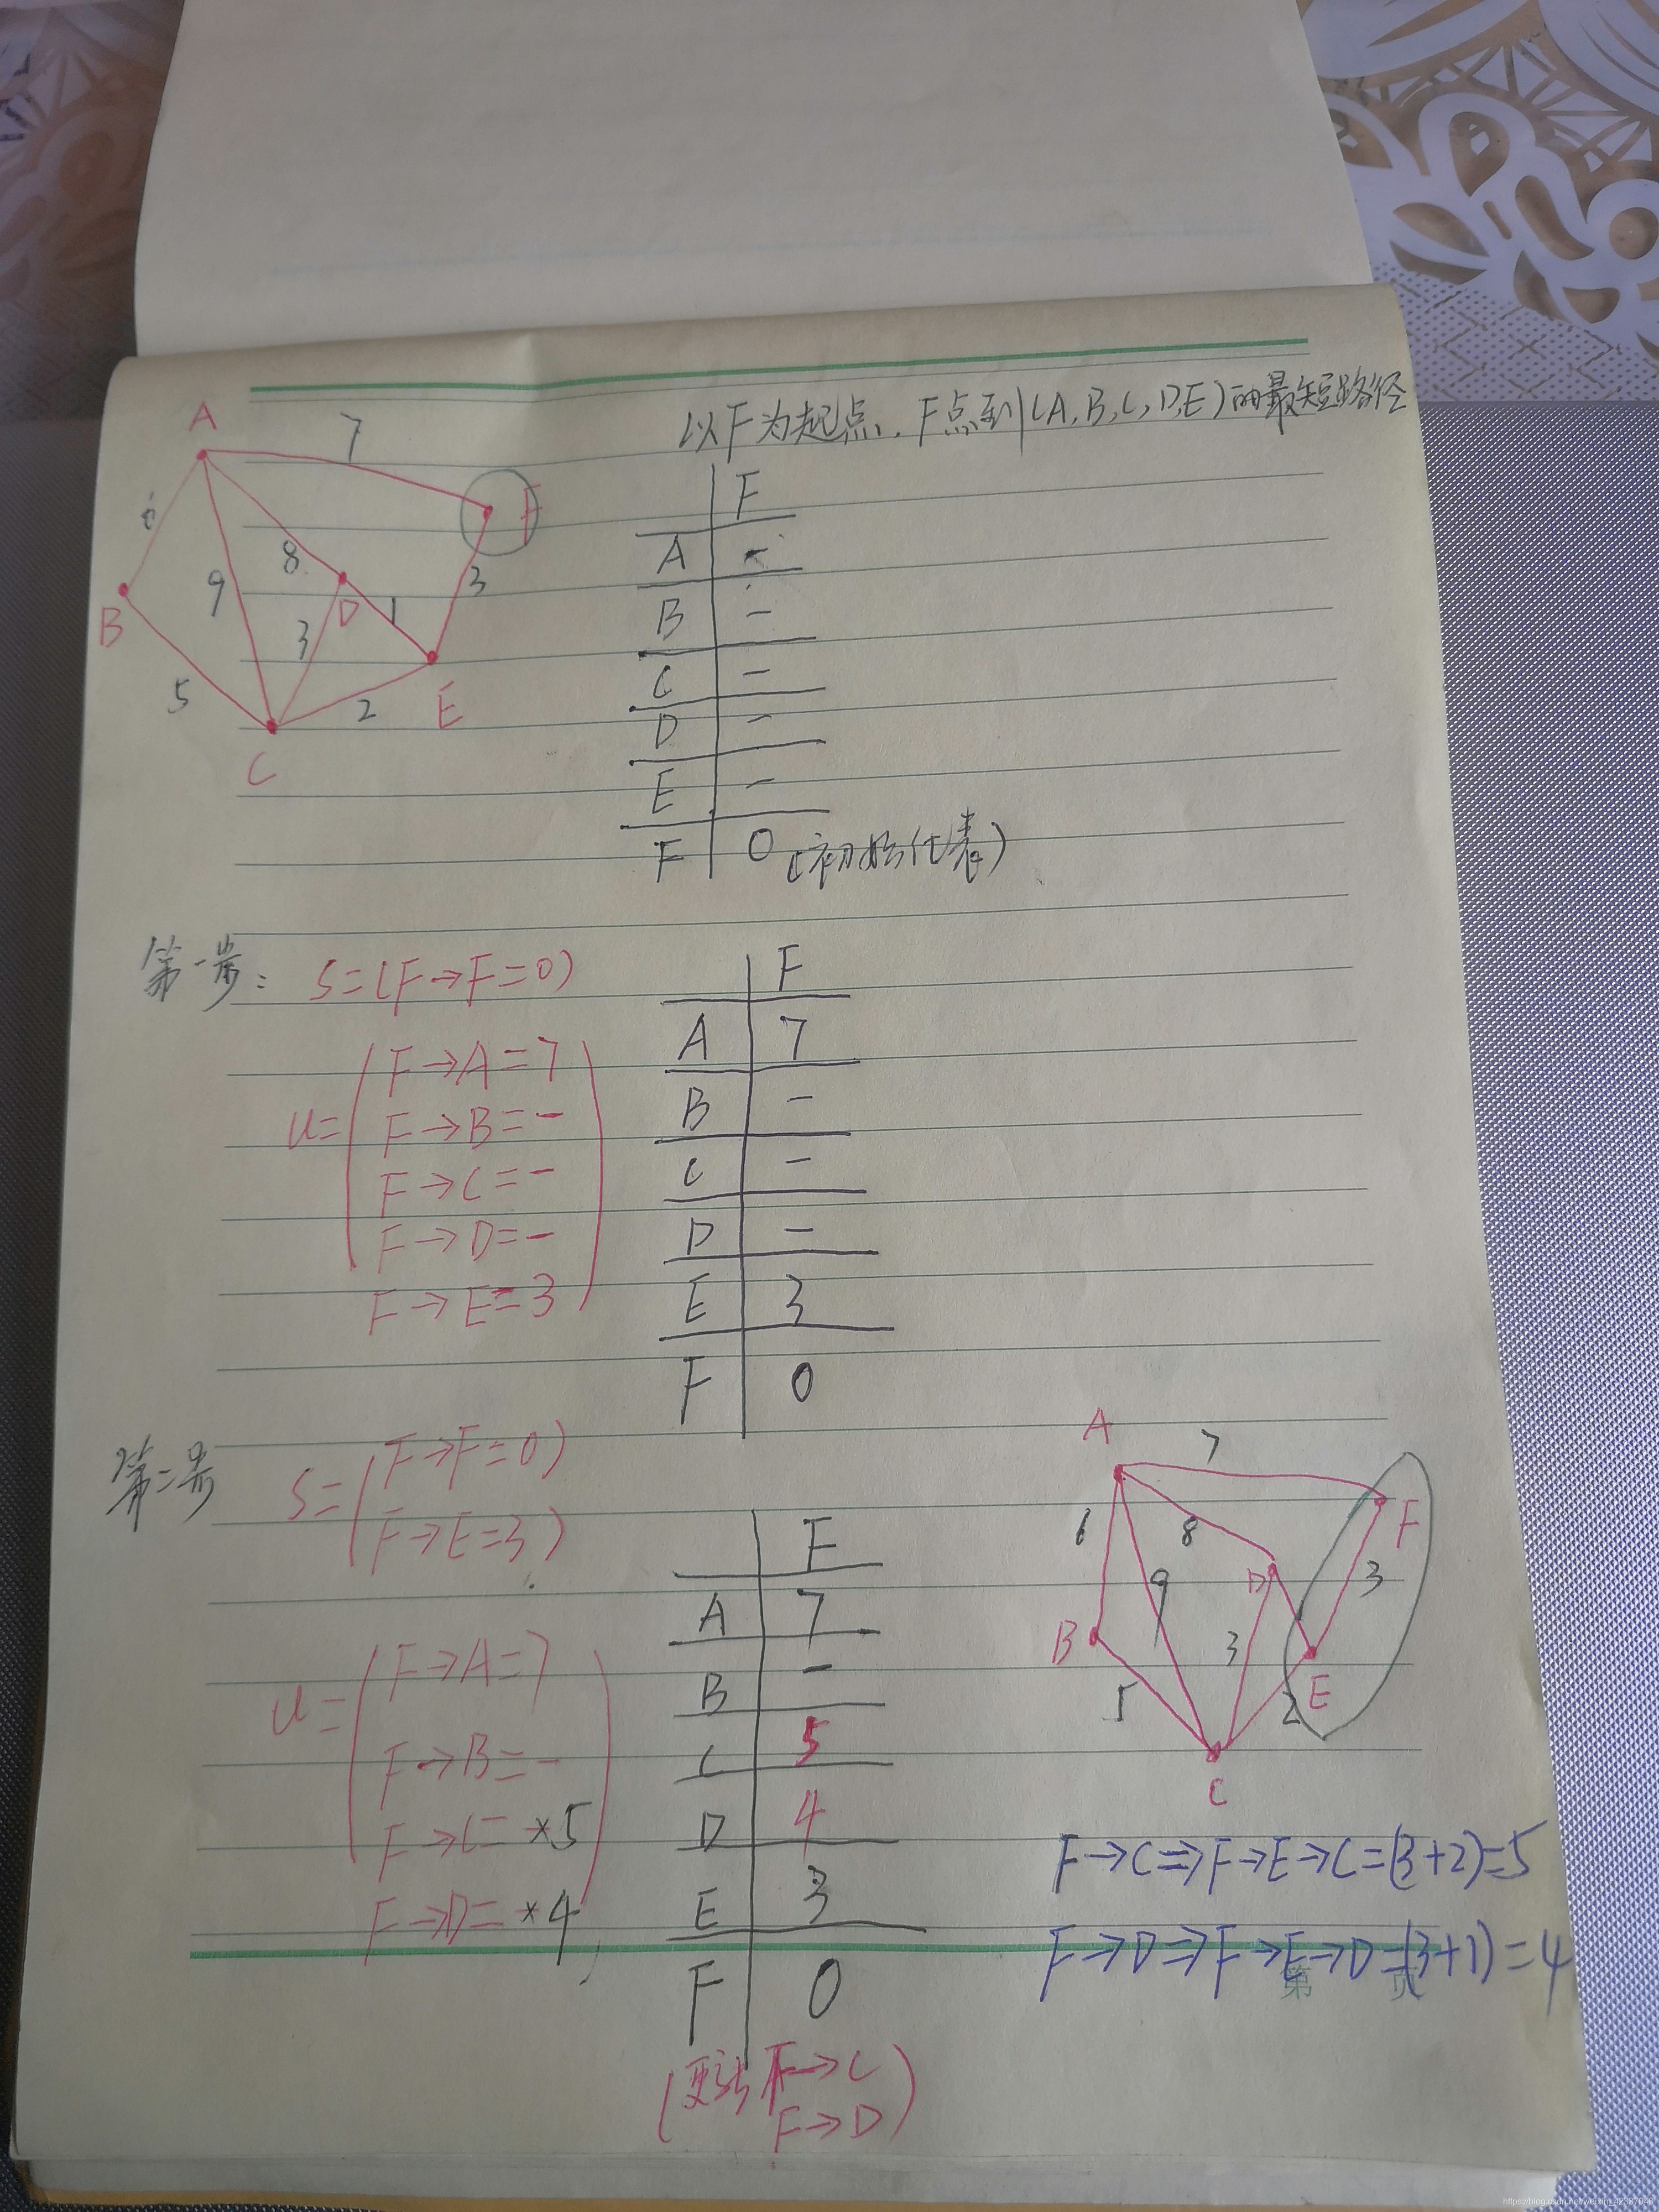 以F为起点,F点到(A,B,C,D,E)的最短路径
A
7
F
6
8
9
3
B
D
1
3
5
2
E
C
F
A -
B -
C -
D -
E -
F 0 (初始化表)
第一步: S=(F→F=0)
U=(F→A=7
F→B=-
F→C=-
F→D=-
F→E=3)
F
A 7
B -
C -
D -
E 3
F 0
第二步 S=(F→F=0)
F→E=3)
U=(F→A=7
F→B=-
F→C=*5
F→D=*4)
F
A 7
B -
C 5
D 4
E 3
F 0
(更改 F→C
F→D)
A
7
F
6
8
D
9
3
B
3
E
5
2
C
F→C⇒F→E→C=(3+2)=5
F→D⇒F→E→D=(3+1)=4
第 页